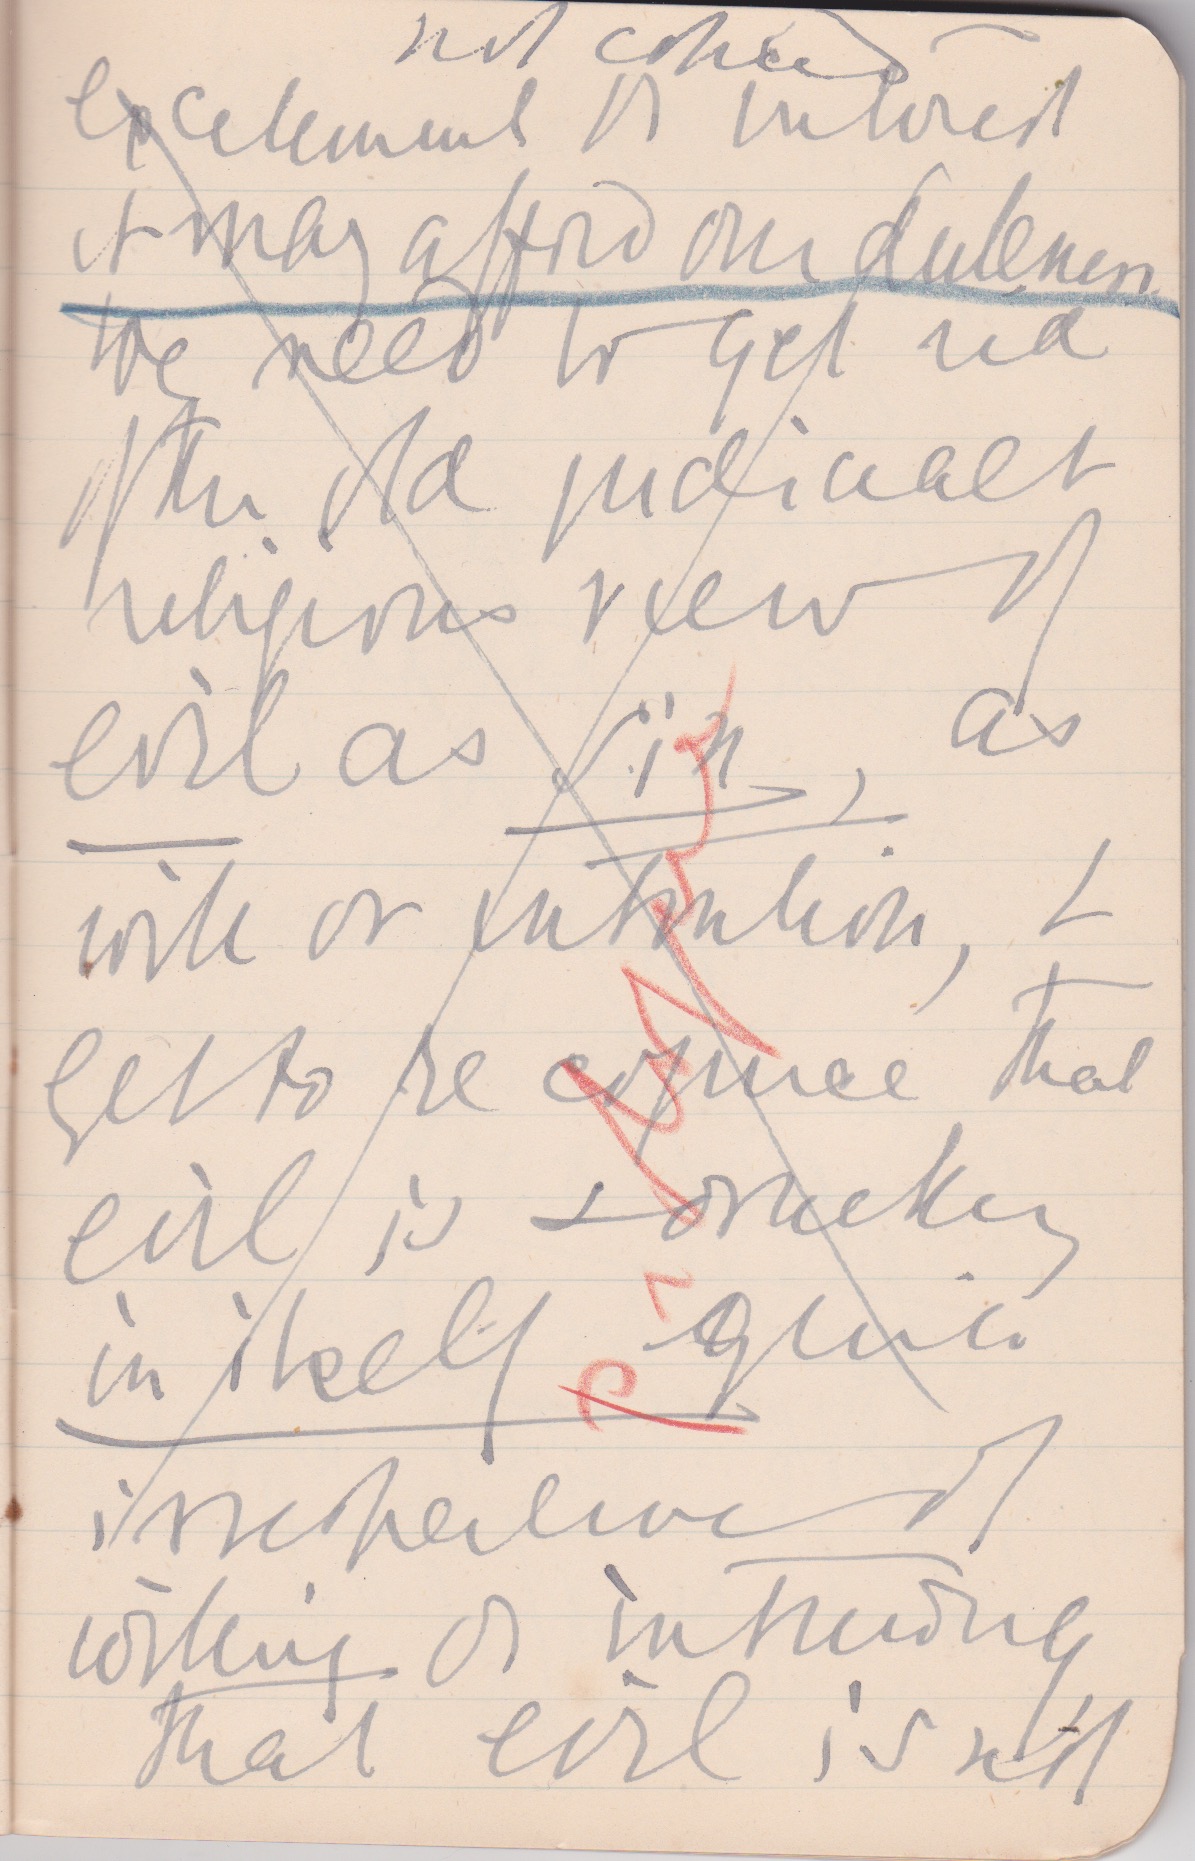 not
excitement or interest
it may afford our dullness
the need to get rid
of the old judicial &
religious view of
evil as sin, as
will or intention, &
get to recognise that
evil is something
in itself quite
irrespective of
willing or intending
that evil is not